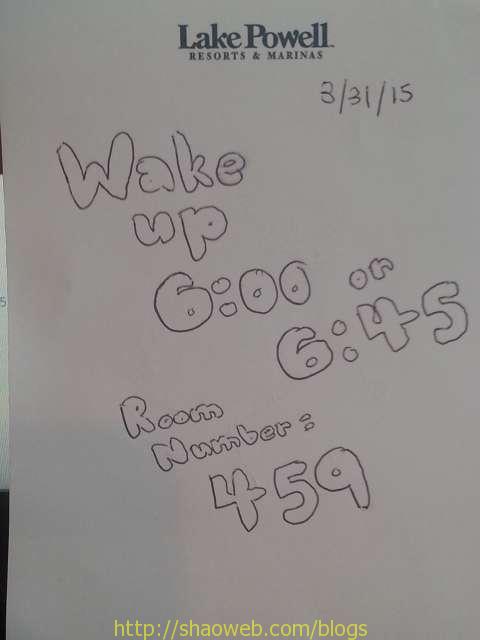 Lake Powell
RESORTS & MARINAS
3/31/15
Wake
up
6:00 or
6:45
Room
Number:
459
5
http://shaoweb.com/blogs